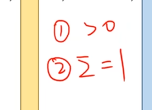 ① >0
② Σ = 1